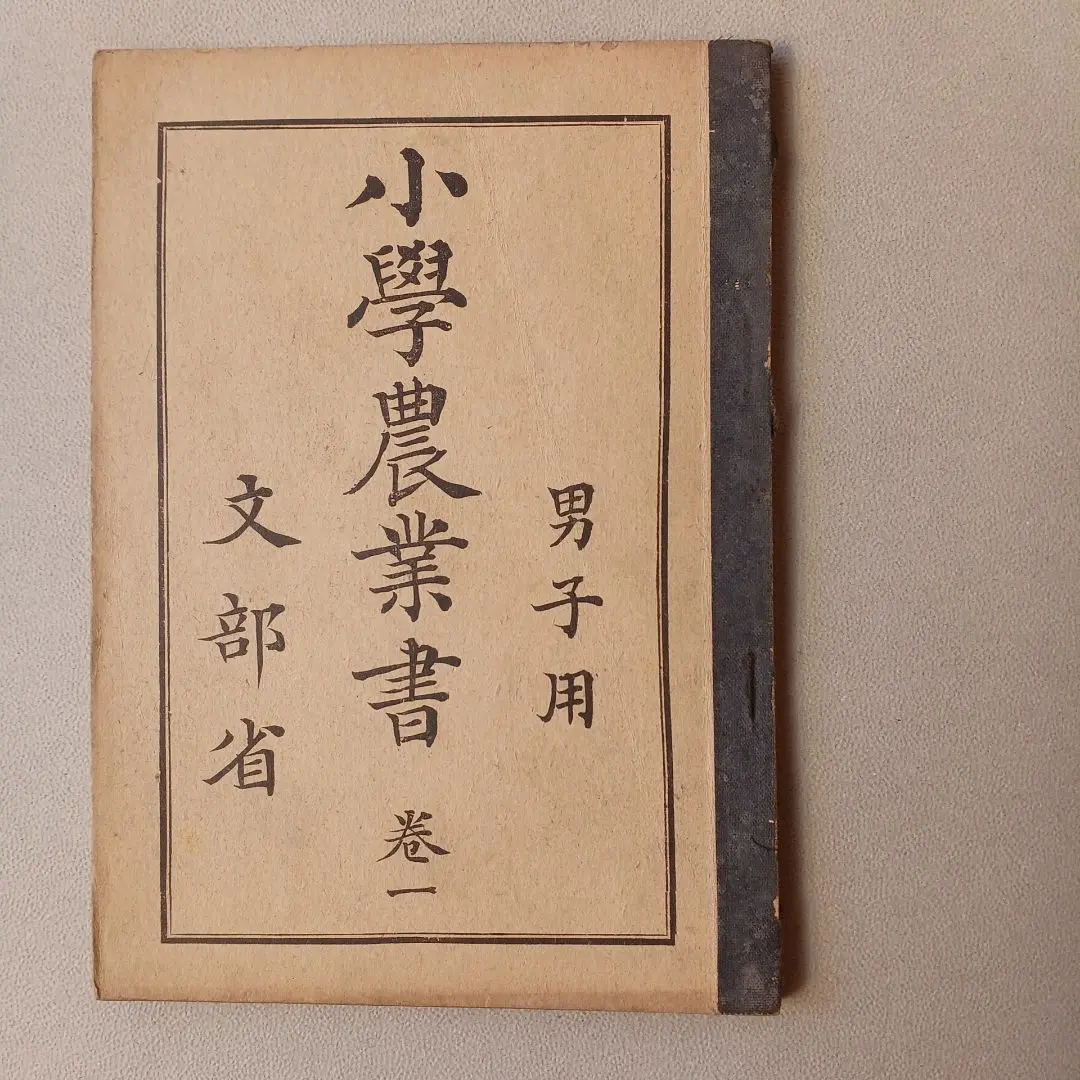 男子用
小學農業書 卷一
文部省